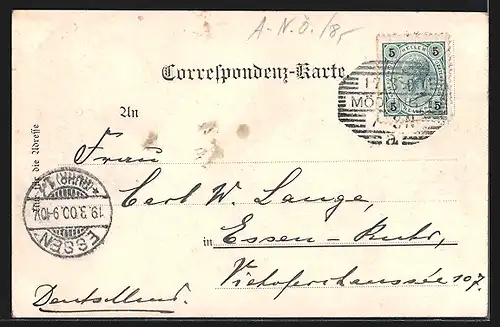 A-N.Ö./8,-
5 HELLER 5
5 5
Correspondenz-Karte.
MÖD
a
An
Nur für die Adresse
Frau
Carl W. Lange,
in Essen-Ruhr,
ESSEN
19.3.00.9-10V.
(RUHR) 1
Victoferchaussée 107.
Deutschland.